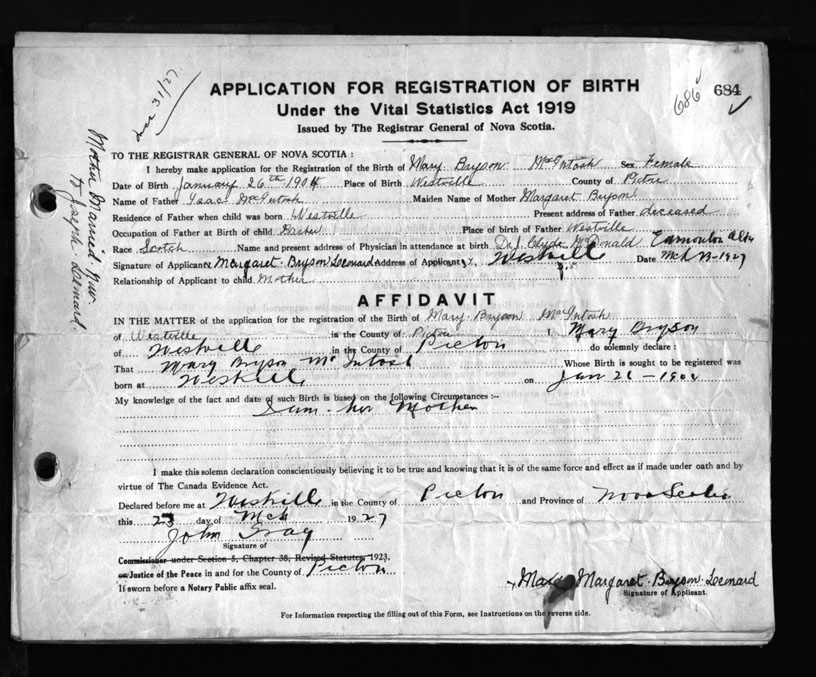 APPLICATION FOR REGISTRATION OF BIRTH
Under the Vital Statistics Act 1919
Issued by The Registrar General of Nova Scotia.
686
684
31/27
Mother Married Now
Joseph Leonard
TO THE REGISTRAR GENERAL OF NOVA SCOTIA :
I hereby make application for the Registration of the Birth of Mary Bryson McIntosh Sex Female
Date of Birth January 26th 1904 Place of Birth Westville County of Pictou
Name of Father Isaac McIntosh Maiden Name of Mother Margaret Bryson
Residence of Father when child was born Westville Present address of Father deceased
Occupation of Father at Birth of child Place of birth of Father Westville
Race Scotch Name and present address of Physician in attendance at birth Dr J. Clyde McDonald Edmonton Alta
Signature of Applicant x Margaret Bryson Leonard Address of Applicant x Westville Date Mch 23-1927
Relationship of Applicant to child Mother
AFFIDAVIT
IN THE MATTER of the application for the registration of the Birth of Mary Bryson McIntosh
of Westville in the County of Pictou I Mary Bryson
of Westville in the County of Pictou do solemnly declare :
That Mary Bryson McIntosh Whose Birth is sought to be registered was
born at Westville on Jan 26 - 1904
My knowledge of the fact and date of such Birth is based on the following Circumstances :--
her Mother
I make this solemn declaration conscientiously believing it to be true and knowing that it is of the same force and effect as if made under oath and by
virtue of The Canada Evidence Act.
Declared before me at Westville in the County of Pictou and Province of Nova Scotia
this 23 day of Mch 1927
John Gray
Signature of
Commissioner under Section 5, Chapter 38, Revised Statutes, 1923.
or Justice of the Peace in and for the County of Pictou
If sworn before a Notary Public affix seal.
x Margaret Bryson Leonard
Signature of Applicant.
For Information respecting the filling out of this Form, see Instructions on the reverse side.